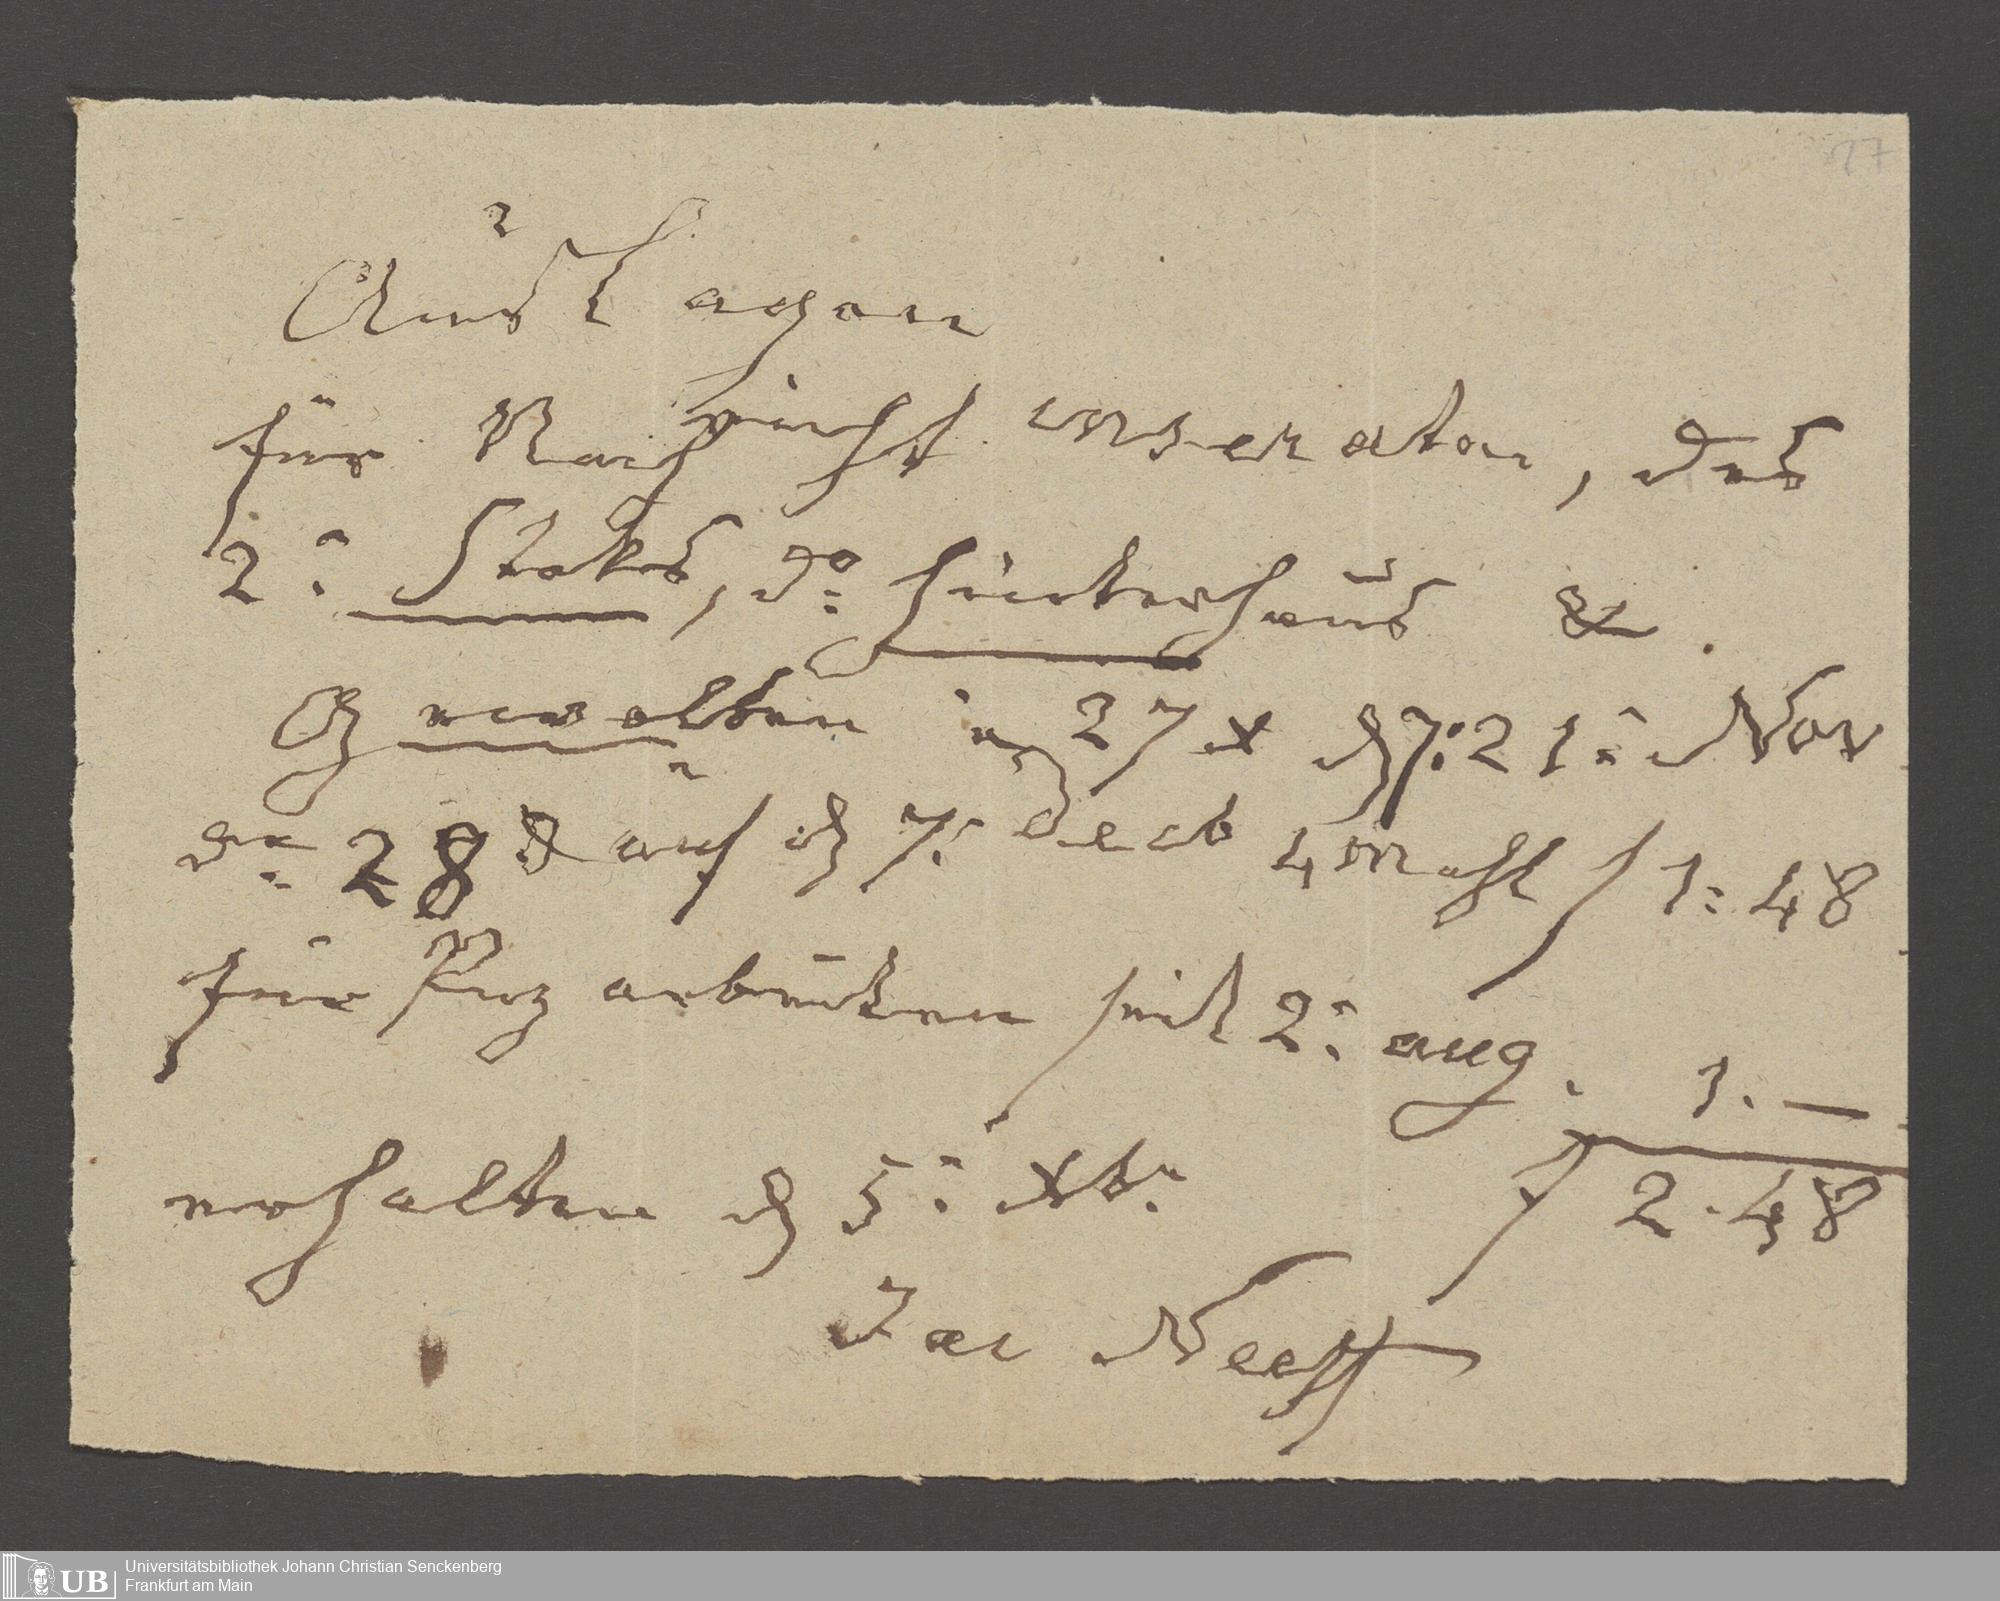 27
Auslagen
für Nachricht inseraten, des
2: Stoks, do: hinterhaus &.
Gewolben in 27 x d 7: 21: Nov
den 28 & auf d 7: Decb 4 Mahl f 1: 48
für Puz arbeiten seit 2: aug. 1. —
f 2. 48
erhalten d 5: Xb:
Jac Neeff
UB
Universitätsbibliothek Johann Christian Senckenberg
Frankfurt am Main